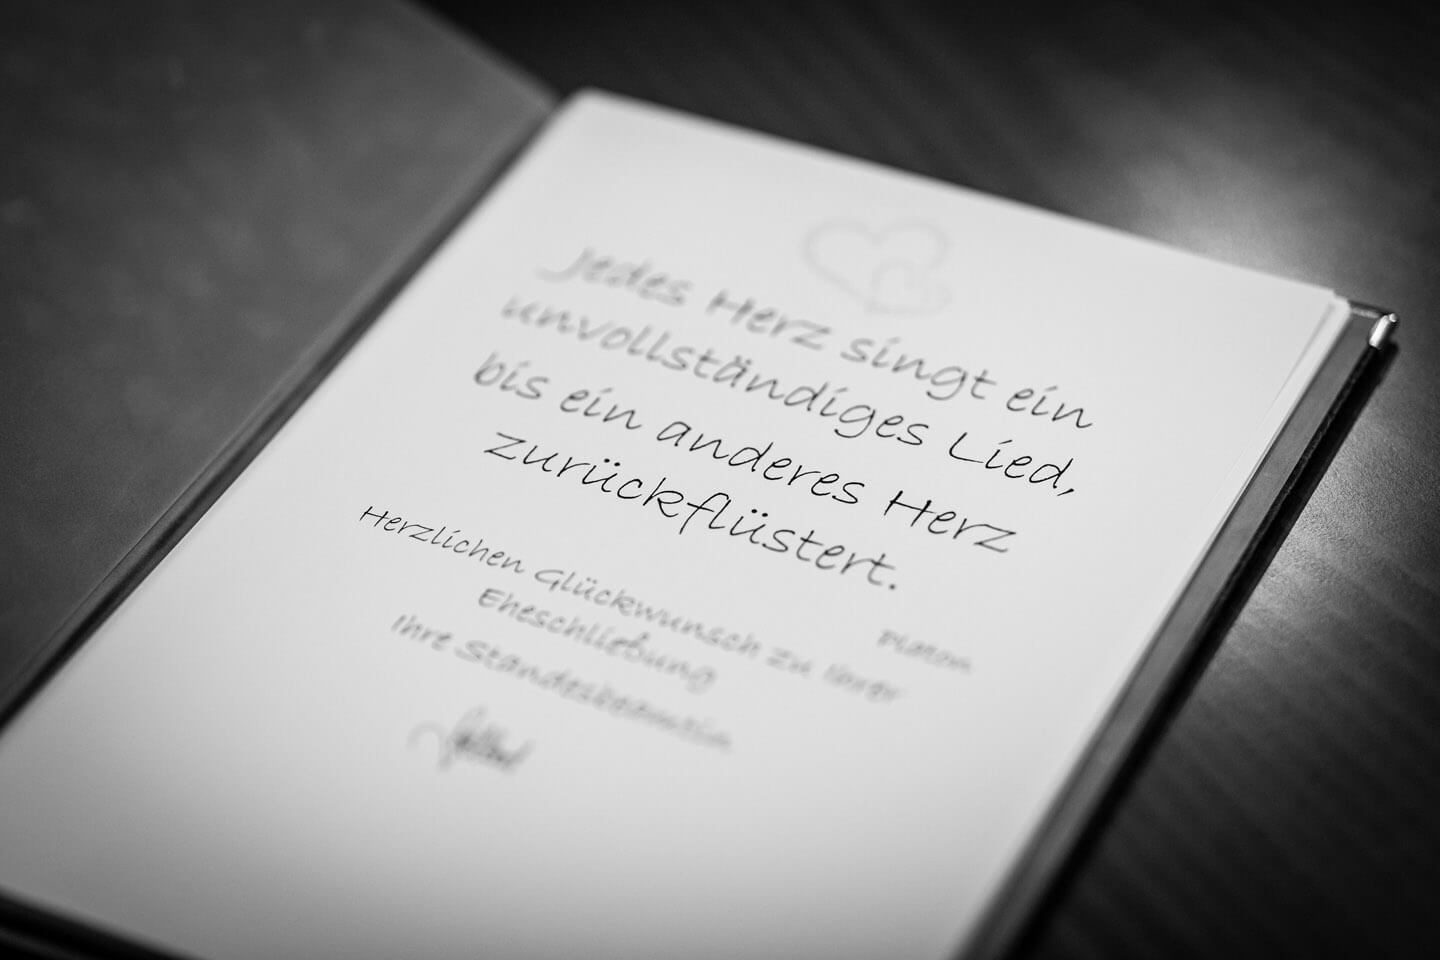 Jedes Herz singt ein
unvollständiges Lied,
bis ein anderes Herz
zurückflüstert.
Platon
Herzlichen Glückwunsch zu Ihrer
Eheschließung
Ihre Standesbeamtin